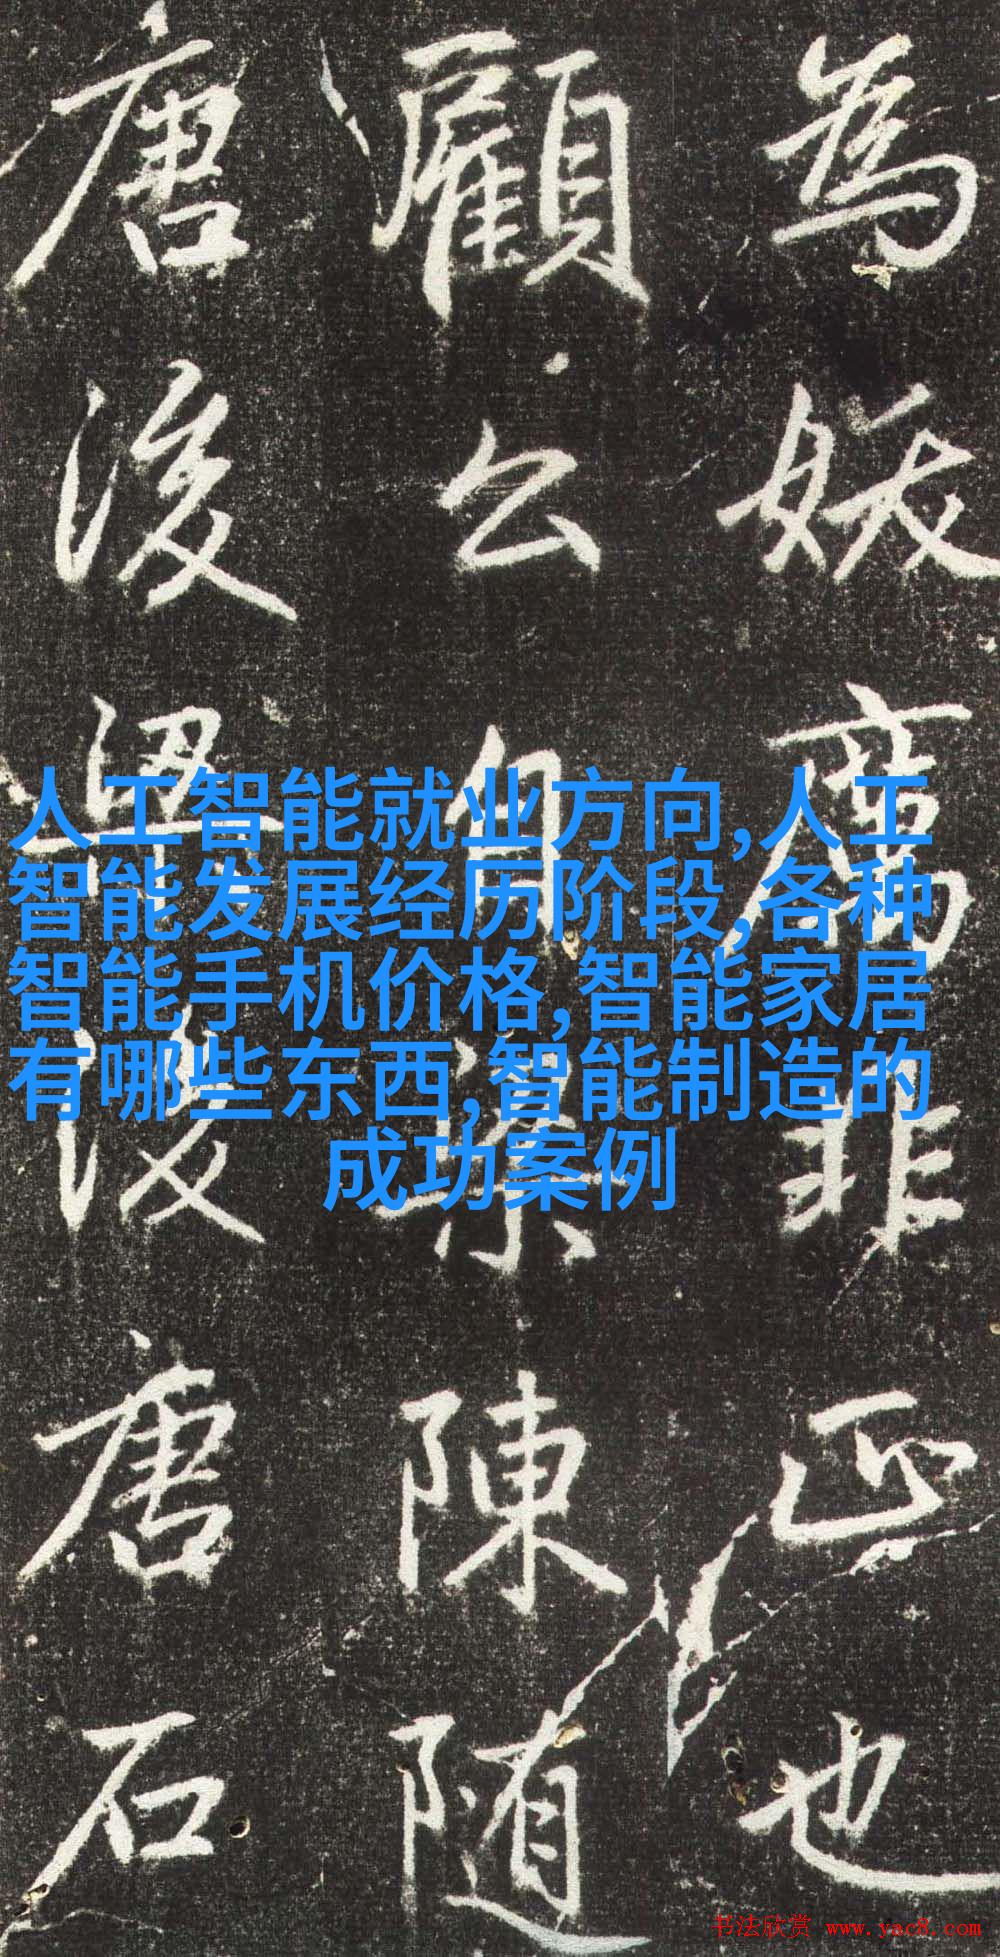 為妖厲非正也
顧公自陳随
唐後後唐石
人工智能就业方向,人工
智能发展经历阶段,各种
智能手机价格,智能家居
有哪些东西,智能制造的
成功案例
书法欣赏 www.yac8.com